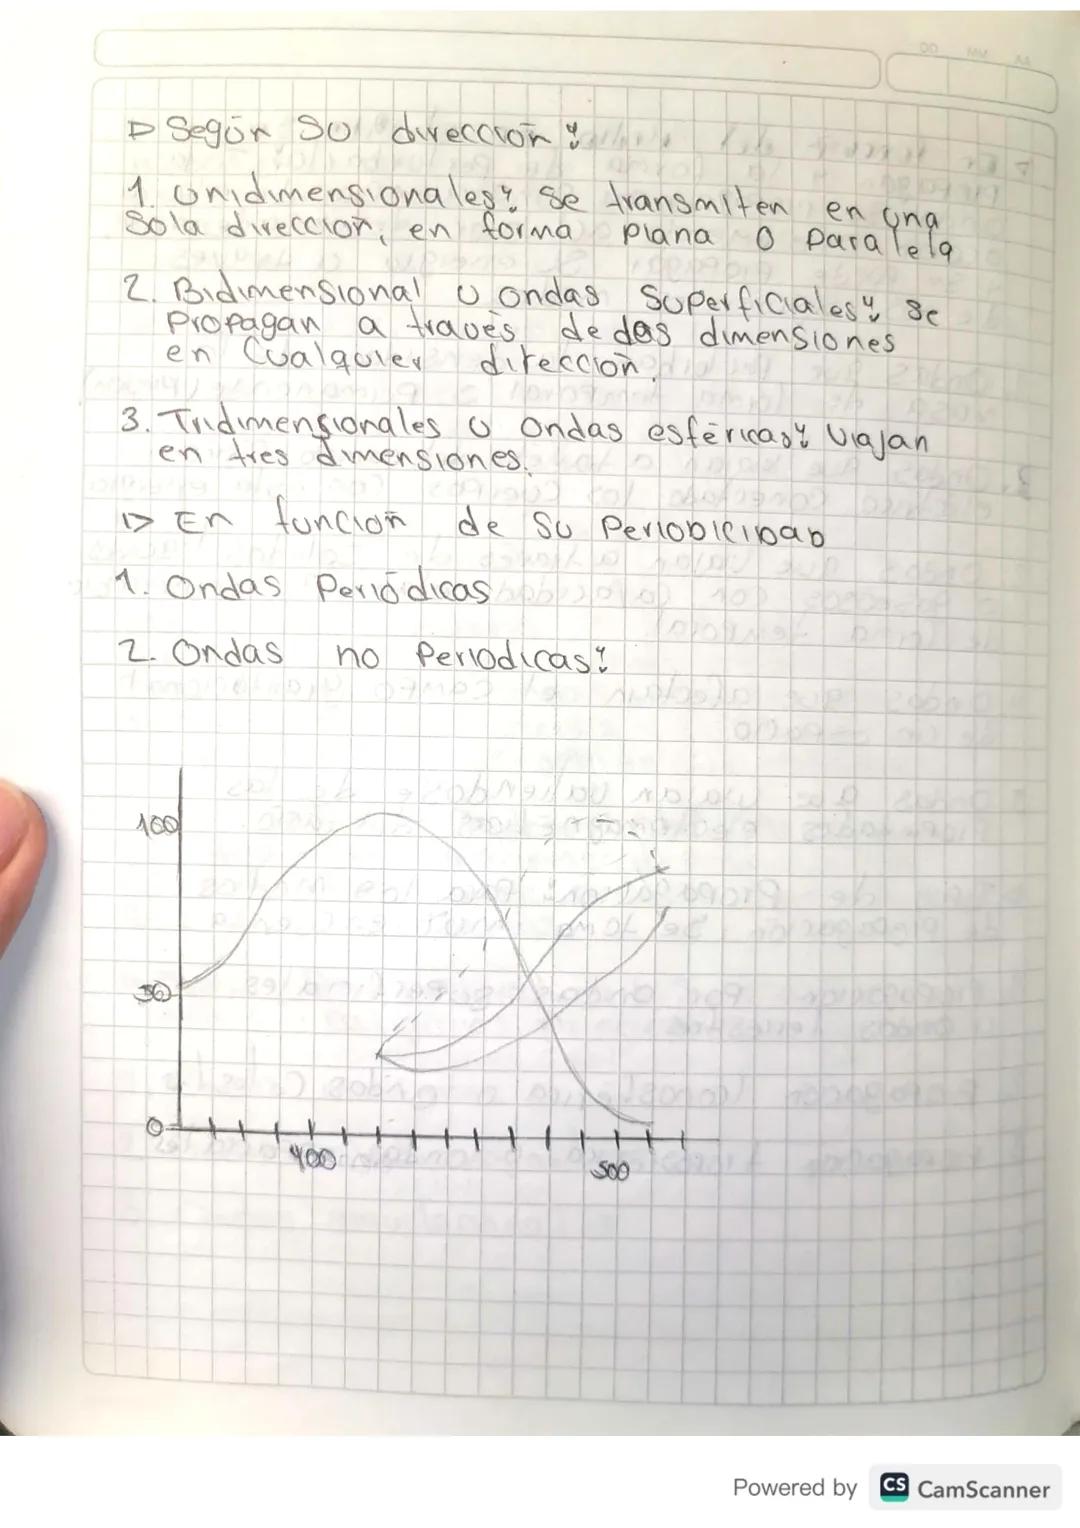 DD MM AA
▷ Según su dirección:
1. Unidimensionales: Se transmiten en una
Sola dirección, en forma plana o paralela
2. Bidimensional u ondas Superficiales: se
Propagan a través de das dimensiones
en Cualquier dirección.
3. Tridimensionales u ondas esféricas: viajan
en tres dimensiones.
▷ En función de su Periodicidad
1. Ondas Periódicas
2. Ondas no Periodicas:
100
50
0
400
500
Powered by CS CamScanner